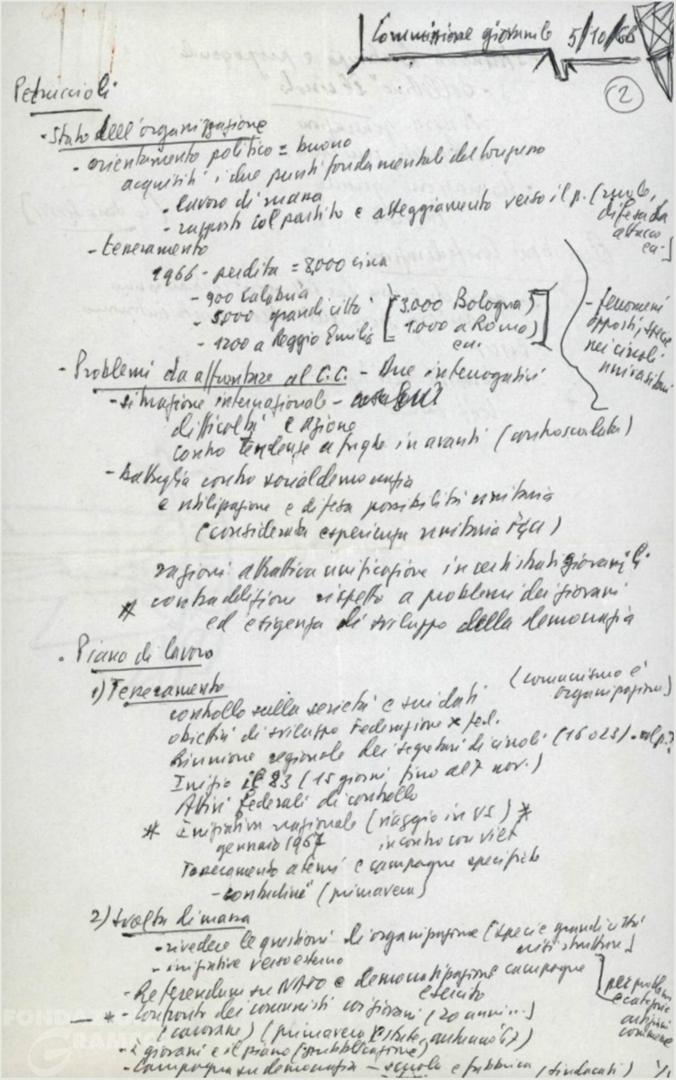 Commissione giovanile 5/10/66
2
Petruccioli
- Stato dell'organizzazione
- orientamento politico = buono
acquisiti i due punti fondamentali del Congresso
- lavoro di massa
- rapporti col partito e atteggiamento verso il p. (ruolo,
difesa da
attacco
ecc.)
- Tesseramento
1966 - perdita = 8000 circa
- 900 Calabria
- 5000 grandi città [3.000 Bologna)
- 1200 a Reggio Emilia 1.000 a Roma)
ecc.
- fenomeni
opposti, specie
nei circoli
universitari
- Problemi da affrontare al C.C. - Due interrogativi
- situazione internazionale -
difficoltà e azione
contro tendenze a fughe in avanti (controscalata)
- Battaglia contro socialdemocrazia
e utilizzazione e difesa possibilità unitaria
(considerata esperienza unitaria FGCI)
ragioni attrattiva unificazione in certi strati giovanili
* contraddizione rispetto a problemi dei giovani
ed esigenza di sviluppo della democrazia
- Piano di lavoro
1) Tesseramento (comunismo è
organizzazione)
controllo sulla serietà e sui dati
obiettivi di sviluppo Federazione x fed.
Riunione regionale dei segretari di circoli (16 o 23) -
Inizio il 23 (15 giorni fino al 7 nov.)
Attivi federali di controllo
* Iniziativa nazionale (viaggio in US) *
gennaio 1967 incontro con Viet
Tesseramento a temi e campagne specifiche
- contadine" (primavera)
2) Svolta di massa
- rivedere le questioni di organizzazione (specie grandi città
- iniziative verso esterno
- Referendum su NATO e democratizzazione campagne
esercito
per problemi
e categorie
- * - Confronto dei comunisti coi giovani (20 anni...)
(lavorare) (primavera, estate, autunno 67)
- I giovani e il piano (pubblicazione)
- Campagna su democrazia - scuola e fabbrica (sindacati) ./.
FONDAZIONE
GRAMSCI